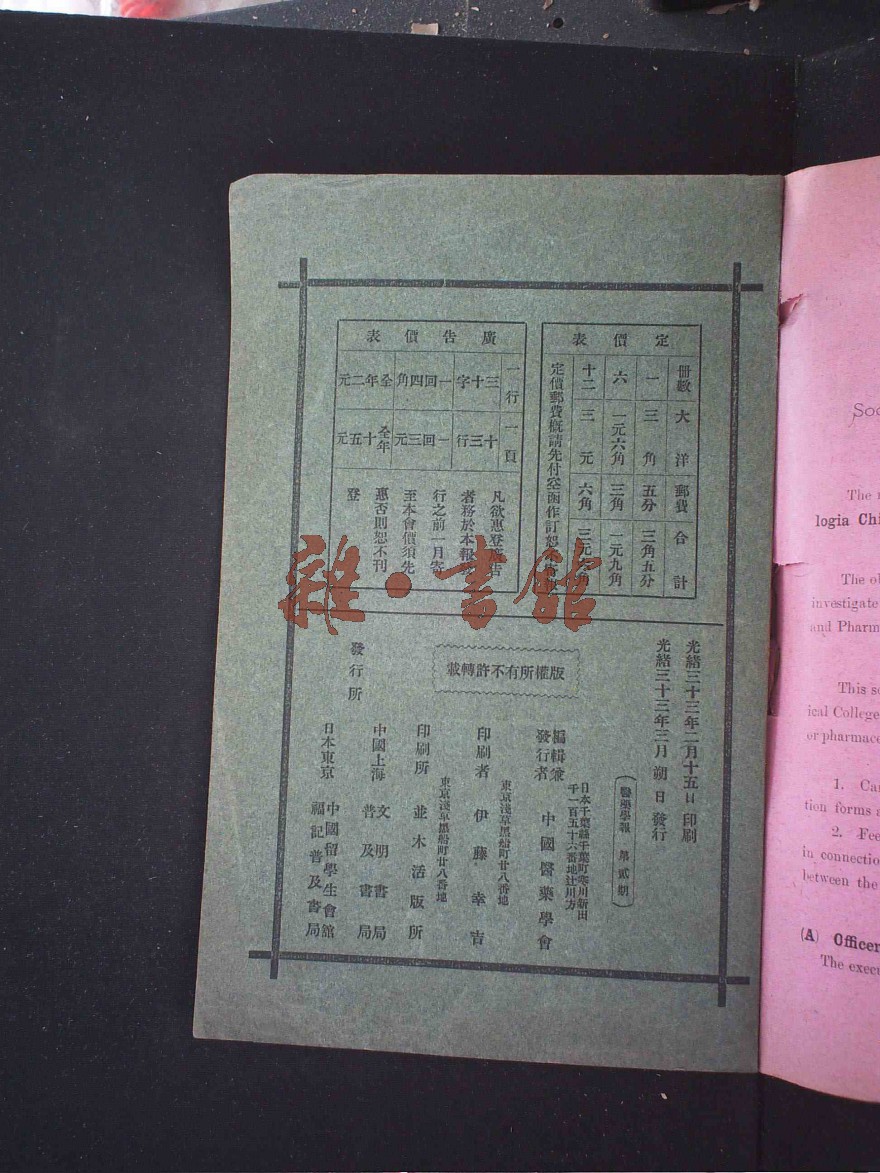 定價表
冊數 大洋 郵費 合計
一 三角 五分 三角五分
六 一元六角 三角 一元九角
十二 三元 六角 三元六角
定價郵費概請先付空函作訂恕不寄
廣告價表
一行 三十字 一回四角 全年二元
一頁 十三行 一回三元 全年十五元
凡欲惠登廣告
者務於本報發
行之前一月寄
至本會價須先
惠否則恕不刊
登
雜·書館
光緒三十三年二月十五日印刷
光緒三十三年三月朔日發行
(醫藥學報 第貳期)
版權所有不許轉載
日本千葉縣千葉町寒川新田
千一百五十六番地辻川方
編輯兼
發行者 中國醫藥學會
東京淺草黑船町廿八番地
印刷者 伊藤幸吉
東京淺草黑船町廿八番地
印刷所 並木活版所
發行所
中國上海 文明書局
普及書局
日本東京 中國留學生會館
福記普及書局
Soc
The
logia Chi
The ob
investigate
and Pharm
This so
ical College
or pharmace
1. Can
tion forms a
2. Fee
in connectio
between the
(A) Officer
The execu